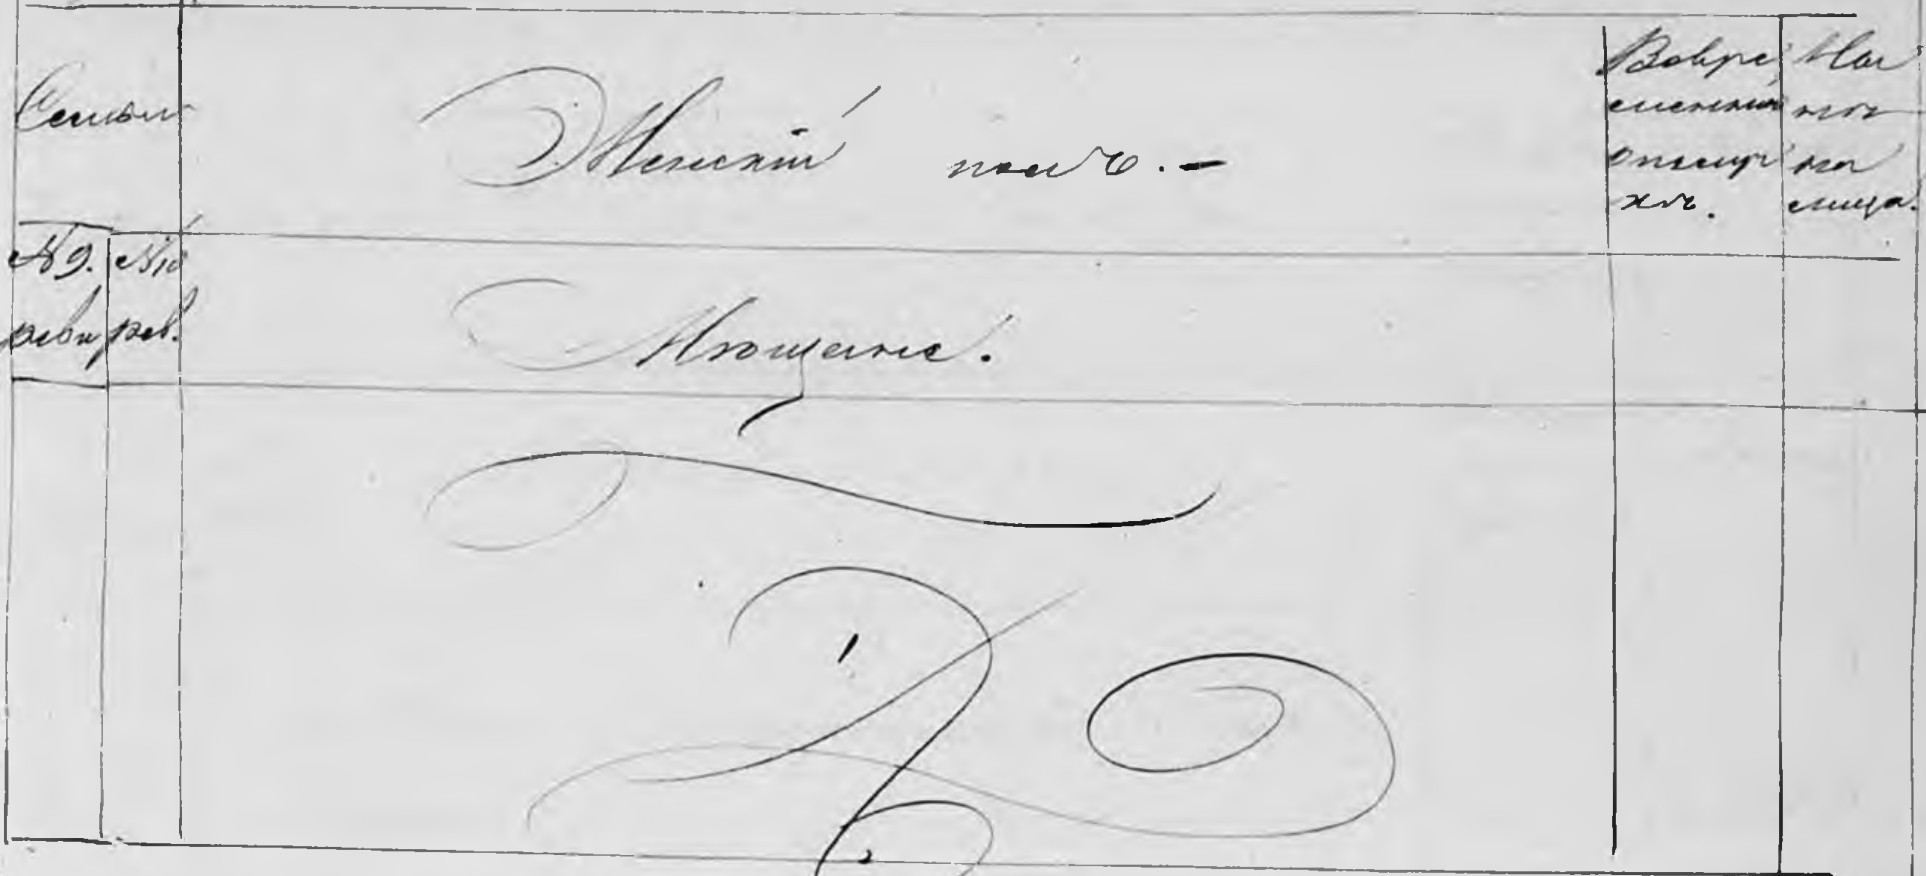 Семьи
Женскій полъ.-
Вовре
менной
отлуч
кѣ.
На
лич
на
лица.
№ 9. № 10
реви, рев.
Мѣщане.